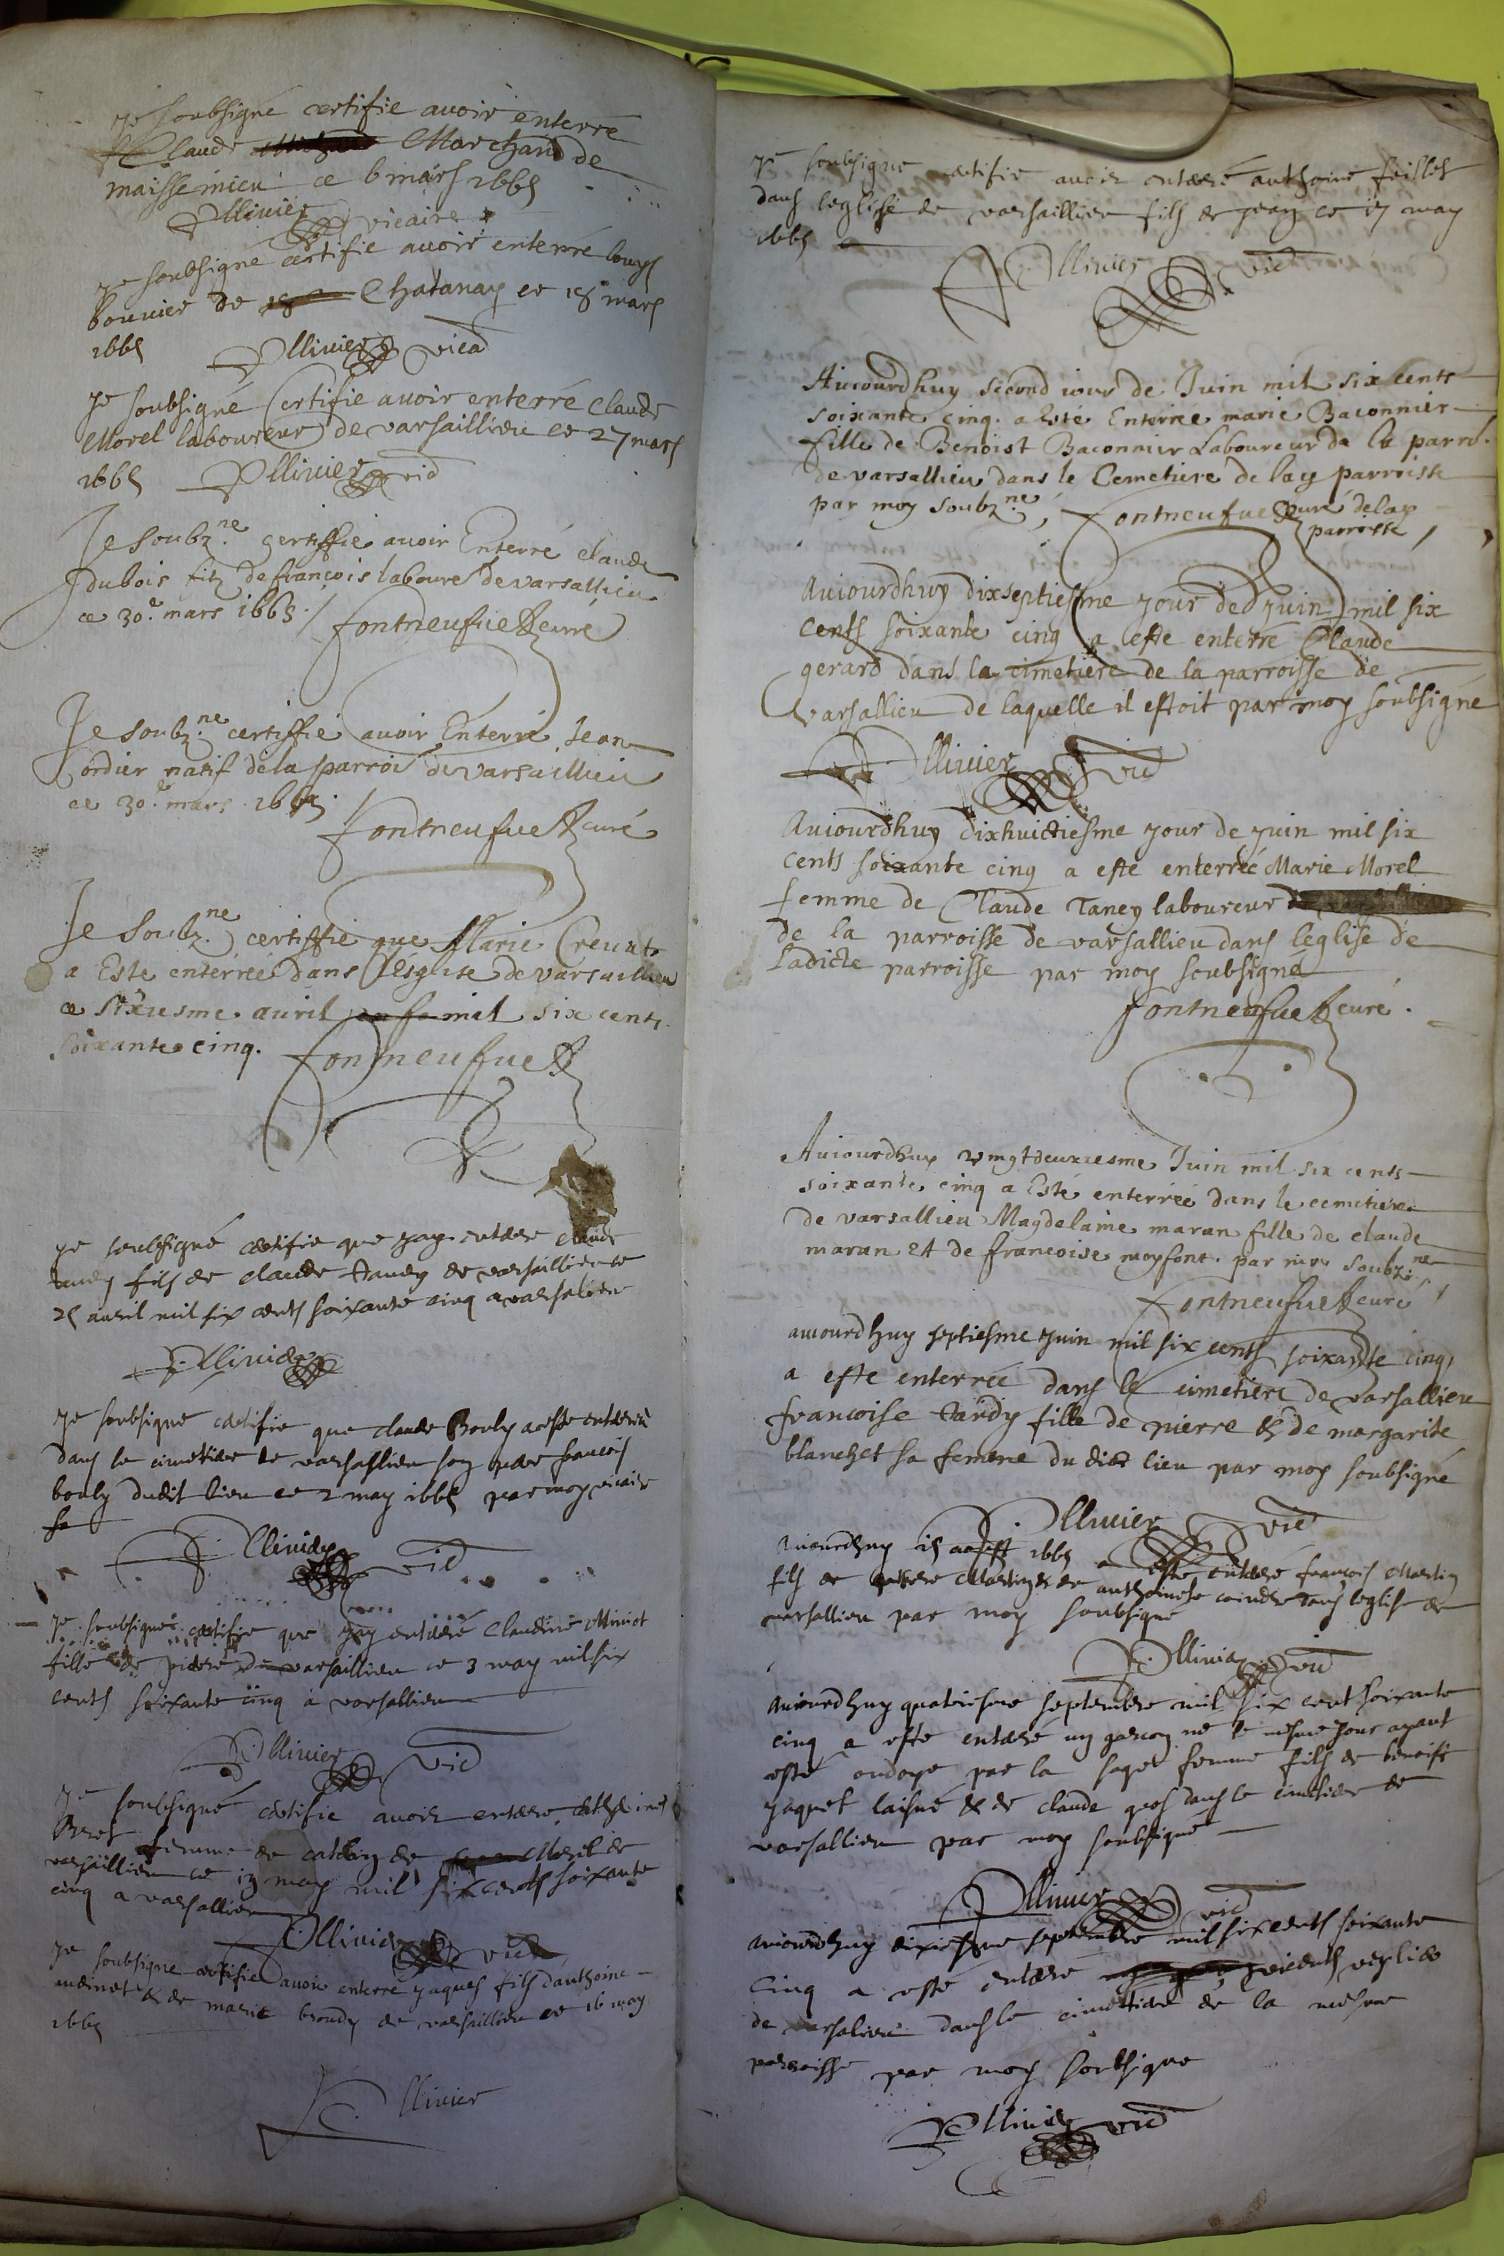 Je soubsigné certifie avoir enterré
Claude Marchand de
maissemieu ce 6 mars 1665
Ollivier vicaire
Je soubsigné certifie avoir enterré louys
bouvier de Chatanay ce 18 mars
1665 Ollivier vic
Je soubsigné Certifie avoir enterré Claude
Morel laboureur de varsaillieu ce 27 mars
1665 Ollivier vic
Je Soubz.ne certiffie avoir Enterré claude
dubois filz de françois laboure de varsallieu
ce 30.e mars 1665. / fontneufue curé
Je soubz.ne certiffié avoir Enterré Jean
ordier natif de la parroi de varsaillieu
ce 30.e mars 1665. fontneufue curé
Je Soubz.ne certiffie que Marie Crevat
a Esté enterréé dans l'Esglise de varsaillieu
ce sixiesme auril mil six cents
Soixante cinq. fontneufue
Je soubsigné certifie que jay enterre claude
fils de claude tandy de varsaillieu ce
25 auril mil six cents soixante cinq a varsalieu
Ollivier
Je soubsigné certifie que claude Bouly a este enterré
dans le cimetiere de varsallieu son pere francois
bouly dudit lieu ce 2 may 1665 par moy vicaire
Ollivier vic
Je soubsigné certifie que jay enterré Claudine Miniot
fille de pierre de varsaillieu ce 3 may mil six
cents soixante cinq a varsallieu
Ollivier vic
Je soubsigné certifie avoir enterre
femme de de Morel de
varsaillieu ce 13 may mil six cents soixante
cinq a varsallieu
Ollivier vic
Je soubsigne certifie avoir enterre jaques fils danthoine
& de marie broudy de varsaillieu ce 16 may
1665
Ollivier
Je soubsigne certifie avoir enterré anthoine
dans leglise de varsaillieu fils de jean ce 17 may
1665
Ollivier vic
Auiourdhuy second iour de Juin mil six cents
soixante cinq. a Esté Enterree marie Baconnier
fille de Benoist Baconnier Laboureur de la parro.
de varsallieu dans le Cemetiere de lay parroisse
par moy soubz.ne, fontneufue curé de lay
parroisse
Auiourdhuy dixseptiesme jour de juin mil six
cents soixante cinq a esté enterré Claude
gerard dans la cimetiere de la parroisse de
varsallieu de laquelle il estoit par moy soubsigné
Ollivier vic
Auiourdhuy dixhuictiesme jour de juin mil six
cents soixante cinq a esté enterréé Marie Morel
femme de Claude Taney laboureur
de la parroisse de varsallieu dans leglise de
Ladicte parroisse par moy soubsigné
fontneufue curé.
Auiourdhuy vingtdeuxiesme Juin mil six cents
soixante cinq a Esté enterréé dans le cemetiere
de varsallieu Magdelaine maran fille de claude
maran et de francoise moyfont. par moy soubz.ne
fontneufue curé
auiourdhuy septiesme juin mil six cents soixante cinq
a esté enterrée dans le cimetiere de varsallieu
francoise tardy fille de pierre & de margarite
blanchet sa femme du dict lieu par moy soubsigné
Ollivier vic
Aujourdhuy 15 aoust 1665 a esté enterré francois Martin
fils de Martin & de anthoinete dans leglise de
varsallieu par moy soubsigné
Ollivier vic
aujourdhuy quatriesme septembre mil six cent soixante
cinq a esté enterré un garcon né le mesme jour ayant
esté ondoye par la sage femme fils de benoist
jaquet laisné & de claude dans le cimetiere de
varsallieu par moy soubsigné
Ollivier vic
aujourdhuy dixiesme septembre mil six cents soixante
cinq a esté enterré
de varsalieu dans le cimetiere de la mesme
parroisse par moy soubsigne
Ollivier vic